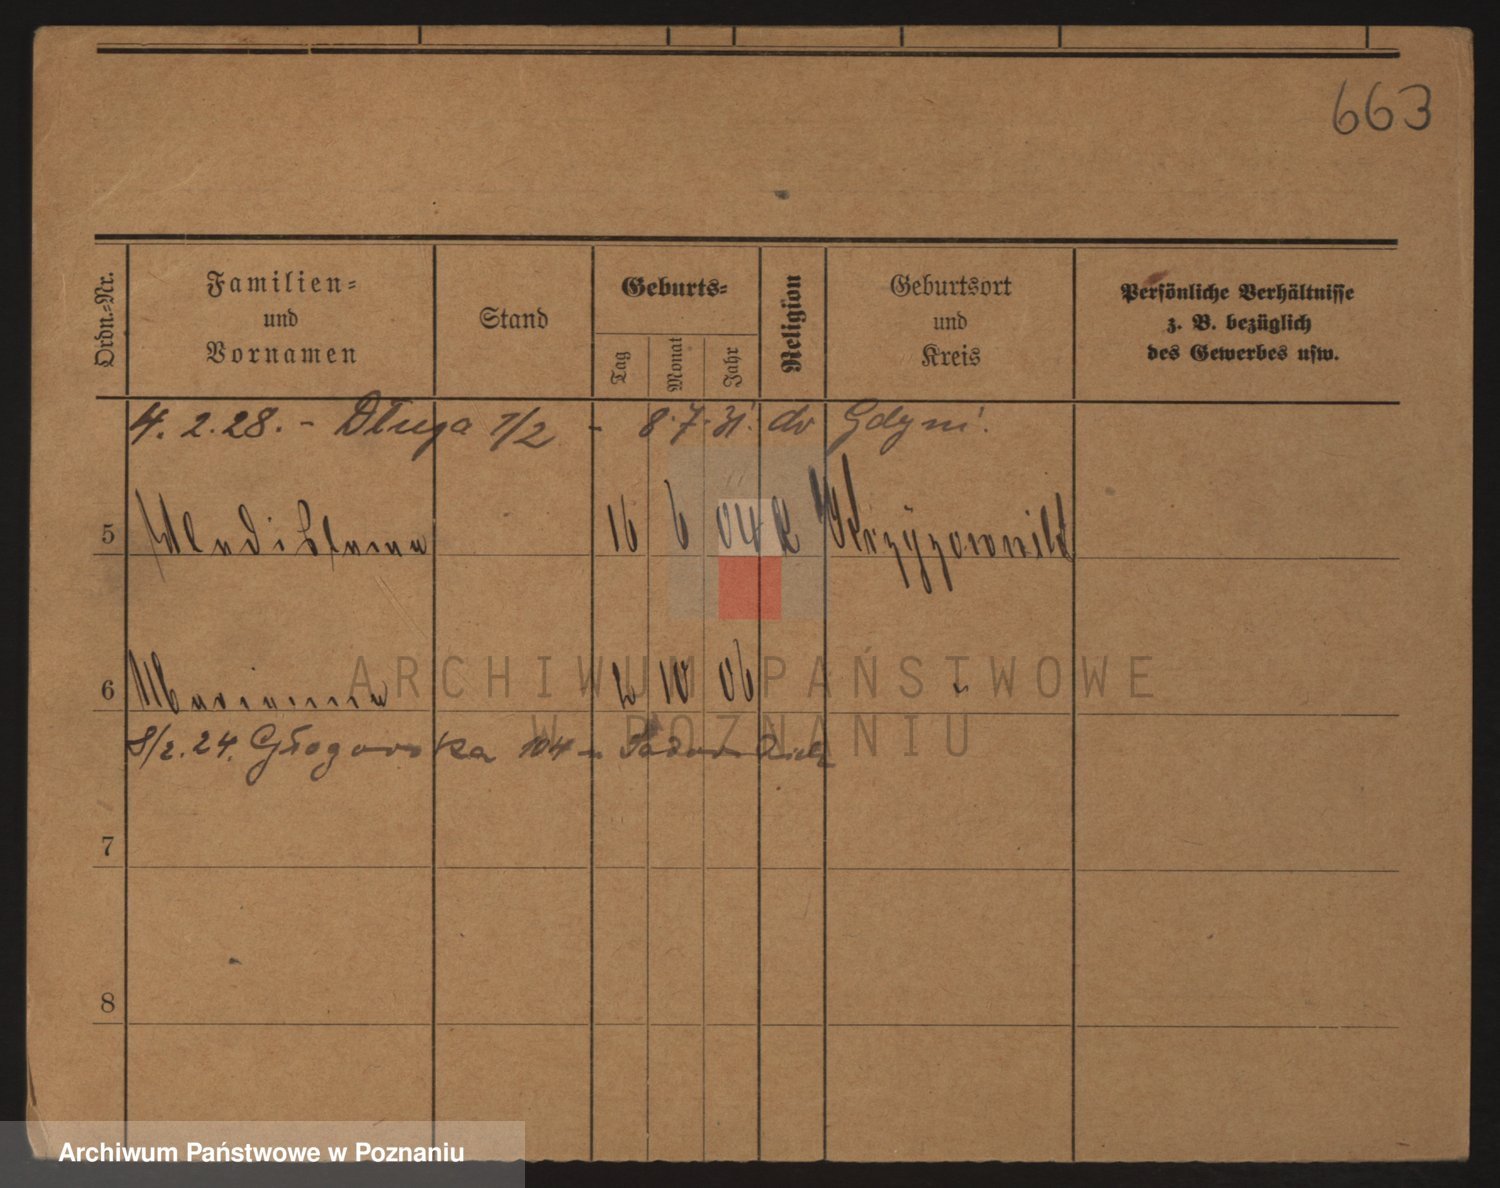 663
Ordn.-Nr.
Familien- und Vornamen
Stand
Geburts-
Tag
Monat
Jahr
Religion
Geburtsort und Kreis
Persönliche Verhältnisse z. B. bezüglich des Gewerbes usw.
4. 2. 28. - Długa 1/2 - 8.7.31. do Gdyni.
5 16 6 04 K
6 Marianna 2 10 06 "
8/2. 24. Głogowska 104
7
8
ARCHIWUM PAŃSTWOWE
W POZNANIU
Archiwum Państwowe w Poznaniu